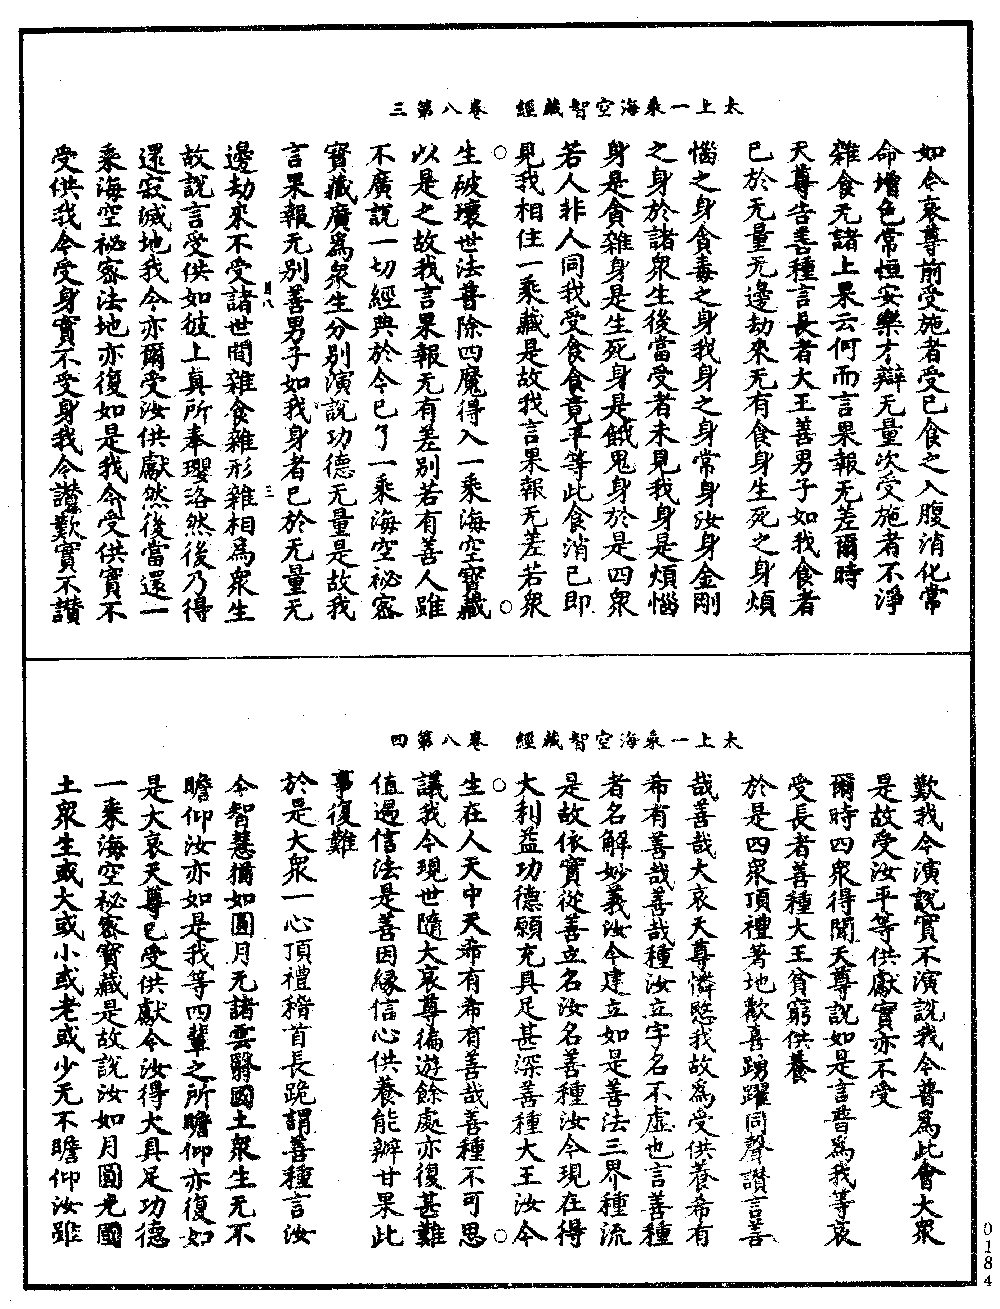 太上一乘海空智藏經　卷八第三
如今哀尊前受施者受已食之入腹消化常
命增色常恒安樂才辯无量次受施者不淨
雜食无諸上果云何而言果報无差爾時
天尊告善種言長者大王善男子如我食者
已於无量无邊劫來无有食身生死之身煩
惱之身貪毒之身我身之身常身汝身金剛
之身於諸眾生後當受者未見我身是煩惱
身是貪雜身是生死身是餓鬼身於是四眾
若人非人同我受食食竟平等此食消已即
見我相住一乘藏是故我言果報无差若眾
生破壞世法普除四魔得入一乘海空寶藏
以是之故我言果報无有差別若有善人雖
不廣說一切經典於今已了一乘海空祕密
寶藏廣爲眾生分別演說功德无量是故我
言果報无別善男子如我身者已於无量无
月八　三
邊劫來不受諸世間雜食雜形雜相爲眾生
故說言受供如彼上真所奉瓔珞然後乃得
還寂滅地我今亦爾受汝供獻然後當還一
乘海空祕密法地亦復如是我今受供實不
受供我今受身實不受身我今讚歎實不讚
太上一乘海空智藏經　卷八第四
歎我今演說實不演說我今普爲此會大眾
是故受汝平等供獻實亦不受
爾時四眾得聞天尊說如是言普爲我等哀
受長者善種大王貧窮供養
於是四眾頂禮著地歡喜踴躍同聲讚言善
哉善哉大哀天尊憐愍我故爲受供養希有
希有善哉善哉種汝立字名不虛也言善種
者名解妙義汝今建立如是善法三界種流
是故依實從善立名汝名善種汝今現在得
大利益功德願充具足甚深善種大王汝今
生在人天中天希有希有善哉善種不可思
議我今現世隨大哀尊徧遊餘處亦復甚難
值過信法是善因緣信心供養能辦甘果此
事復難
於是大眾一心頂禮稽首長跪謂善種言汝
今智慧猶如圓月无諸雲翳國土眾生无不
瞻仰汝亦如是我等四輩之所瞻仰亦復如
是大哀天尊已受供獻今汝得大具足功德
一乘海空祕密寶藏是故說汝如月圓光國
土眾生或大或小或老或少无不瞻仰汝雖
0184